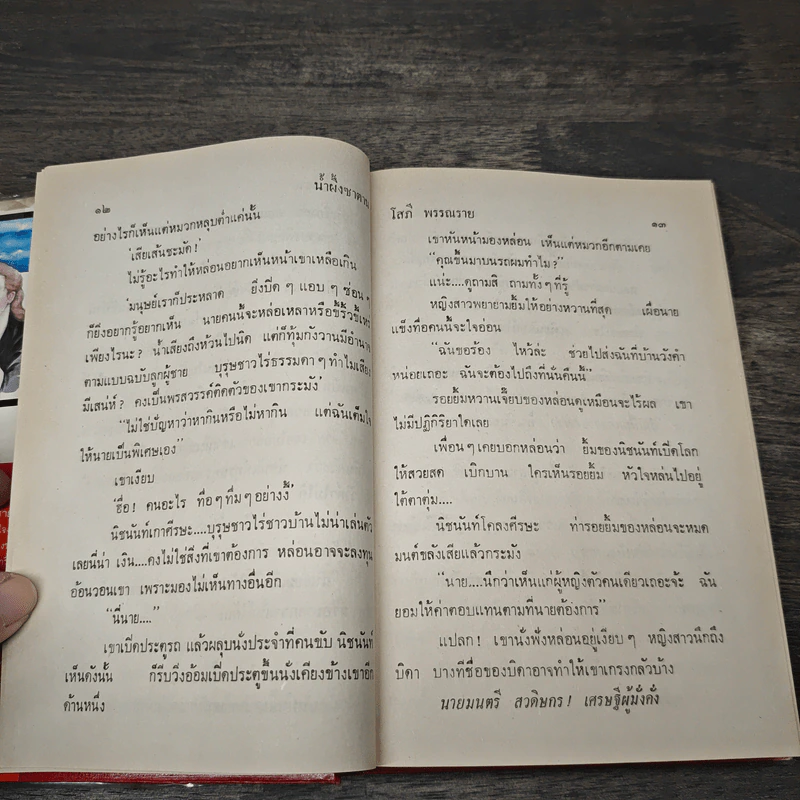 ๑๒
น้ำผึ้งซาตาน
อย่างไรก็เห็นแต่หมวกหลุบต่ำแค่นั้น
'เสียเส้นชะมัด!'
ไม่รู้อะไรทำให้หล่อนอยากเห็นหน้าเขาเหลือเกิน
'มนุษย์เราก็ประหลาด ยิ่งปิด ๆ แอบ ๆ ซ่อน ๆ
ก็ยิ่งอยากรู้อยากเห็น นายคนนี้จะหล่อเหลาหรือขี้ริ้วขี้เหร่
เพียงไรนะ? น้ำเสียงถึงห้วนไปนิด แต่ก็ทุ้มกังวานมีอำนาจ
ตามแบบฉบับลูกผู้ชาย บุรุษชาวไร่ธรรมดา ๆ ทำไมเสียง
มีเสน่ห์? คงเป็นพรสวรรค์ติดตัวของเขากระมัง'
"ไม่ใช่ปัญหาว่าหากินหรือไม่หากิน แต่ฉันเต็มใจ
ให้นายเป็นพิเศษเอง"
เขาเงียบ
'ฮื่อ! คนอะไร ทื่อ ๆ ทึ่ม ๆ อย่างงี้'
นิชนันท์เกาศีรษะ....บุรุษชาวไร่ชาวบ้านไม่น่าเล่นตัว
เลยนี่น่า เงิน....คงไม่ใช่สิ่งที่เขาต้องการ หล่อนอาจจะลงทุน
อ้อนวอนเขา เพราะมองไม่เห็นทางอื่นอีก
"นี่นาย...."
เขาเปิดประตูรถ แล้วผลุบนั่งประจำที่คนขับ นิชนันท์
เห็นดังนั้น ก็รีบวิ่งอ้อมเปิดประตูขึ้นนั่งเคียงข้างเขาอีก
ด้านหนึ่ง
โสภี พรรณราย
๑๓
เขาหันหน้ามองหล่อน เห็นแต่หมวกอีกตามเคย
"คุณขึ้นมาบนรถผมทำไม?"
แน่ะ....ดูถามสิ ถามทั้ง ๆ ที่รู้
หญิงสาวพยายามยิ้มให้อย่างหวานที่สุด เผื่อนาย
แข็งทื่อคนนี้จะใจอ่อน
"ฉันขอร้อง ไหว้ล่ะ ช่วยไปส่งฉันที่บ้านวังคำ
หน่อยเถอะ ฉันจะต้องไปถึงที่นั่นคืนนี้"
รอยยิ้มหวานเจี๊ยบของหล่อนดูเหมือนจะไร้ผล เขา
ไม่มีปฏิกิริยาใดเลย
เพื่อน ๆ เคยบอกหล่อนว่า ยิ้มของนิชนันท์เปิดโลก
ให้สวยสด เบิกบาน ใครเห็นรอยยิ้ม หัวใจหล่นไปอยู่
ใต้ตาตุ่ม....
นิชนันท์โคลงศีรษะ ท่ารอยยิ้มของหล่อนจะหมด
มนต์ขลังเสียแล้วกระมัง
"นาย....นึกว่าเห็นแก่ผู้หญิงตัวคนเดียวเถอะจ้ะ ฉัน
ยอมให้ค่าตอบแทนตามที่นายต้องการ"
แปลก! เขานั่งฟังหล่อนอยู่เงียบ ๆ หญิงสาวนึกถึง
บิดา บางทีชื่อของบิดาอาจทำให้เขาเกรงกลัวบ้าง
นายมนตรี สวดิษกร! เศรษฐีผู้มั่งคั่ง